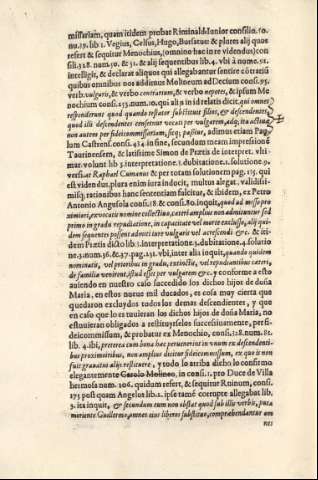 missariam, quam itidem probat Riminald. Iunior consilio. 10.
nu. 19. lib. 1. Vegius, Celsus, Hugo, Bursatus & plures alij quos
refert & sequitur Menochius, (omnino hac in re videndus) con
sil. 328. num. 50. & 51. & alij sequentibus lib. 4. vbi à nume. 51.
intelligit, & declarat aliquot qui allegabantur sentire cõtrariũ
quibus omnibus noo adijunde Molineum ad Decium consi. 95.
verb. vulgaris, & verbo contrarium, & verbo nepotes, & ipsum Me
nochium consi. 153. num. 10. qui alijs in id relatis dicit, qui omnes
responderunt quod quando testator substituit filios, & descendentes
quod illi descendentes censentur vocati per vulgarem, adq; ita actum,
non autem per fideicommissariam, sicq; passitur, adimus etiam Pau
lum Castrens. consi. 434. in fine, secundum meam impressionẽ
Taurinensem, & latissime Simon de Prætis de interpret. vlti-
mar. volunt lib 3. interpretatione. 1. dubitatione. 2. solutione 9.
versi. at Raphael Cumanus & per totam solutionem pag. 115. qui
est videndus, plura enim iura inducit, multos alegat. validissi-
misq; rationibus hanc sententiam fulcitur, & ibidem, ex Petro
Antonio Angusola consi. 18 & consi. 80. inquit, quod ad missis pro
ximiori, ex vocatis nomine collectiuo, cæteri amplius non admituntur sed
primo in gradu repudiatione, in capacitate vel morte excluso, alij qui-
dem sequentes possent admoti iure vulgaris vel acrescendi &c. & iti-
dem Prætis dicto lib 3. interpretatione. 3. dubitatione. 4. solutio
ne. 3. num. 36. & 37. pag. 251. vbi, inter alia inquit, quando autem
nominatis, vel prioribus in gradu, extinctis, vel repudiantibus cæteri
de familia venirent, istud esset per vulgarem &c. y conforme a esto
auiendo en nuestro caso succedido los dichos hijos de doña
Maria, en estos nouus mil ducados, es cosa muy cierta que
quedaron excluydos todos los demas descendientes, y que
en caso que los ex tuuieran los dichos hijos de doña Maria, no
estuuieran obligados a restituyrselos successiuamente, per fi-
deicommissum, & probatur ex Menochio, consi. 128. num. 12.
lib. 4. ibi, præterea cum bona hæc peruenerint in vnum ex descendenti-
bus proximioribus, non amplius dicitur fideicomissum, ex quo is non
fuit grauatus alijs restituere, y todo lo arriba dicho lo confirmo
elegantemente Carolo Molineo, in consi. 1. pro Duce de Villa
hermosa num. 106. quidum refert, & sequitur Rninum, consi.
175 post quam Angelos lib. 2. ipse tamẽ corrupte allegabat lib.
3. ita inquit, & secundum eum non obstat quod sub illis verbis, puta
moriente Guillermo, omnes eius liberos substitue, comprehendantur om
nes